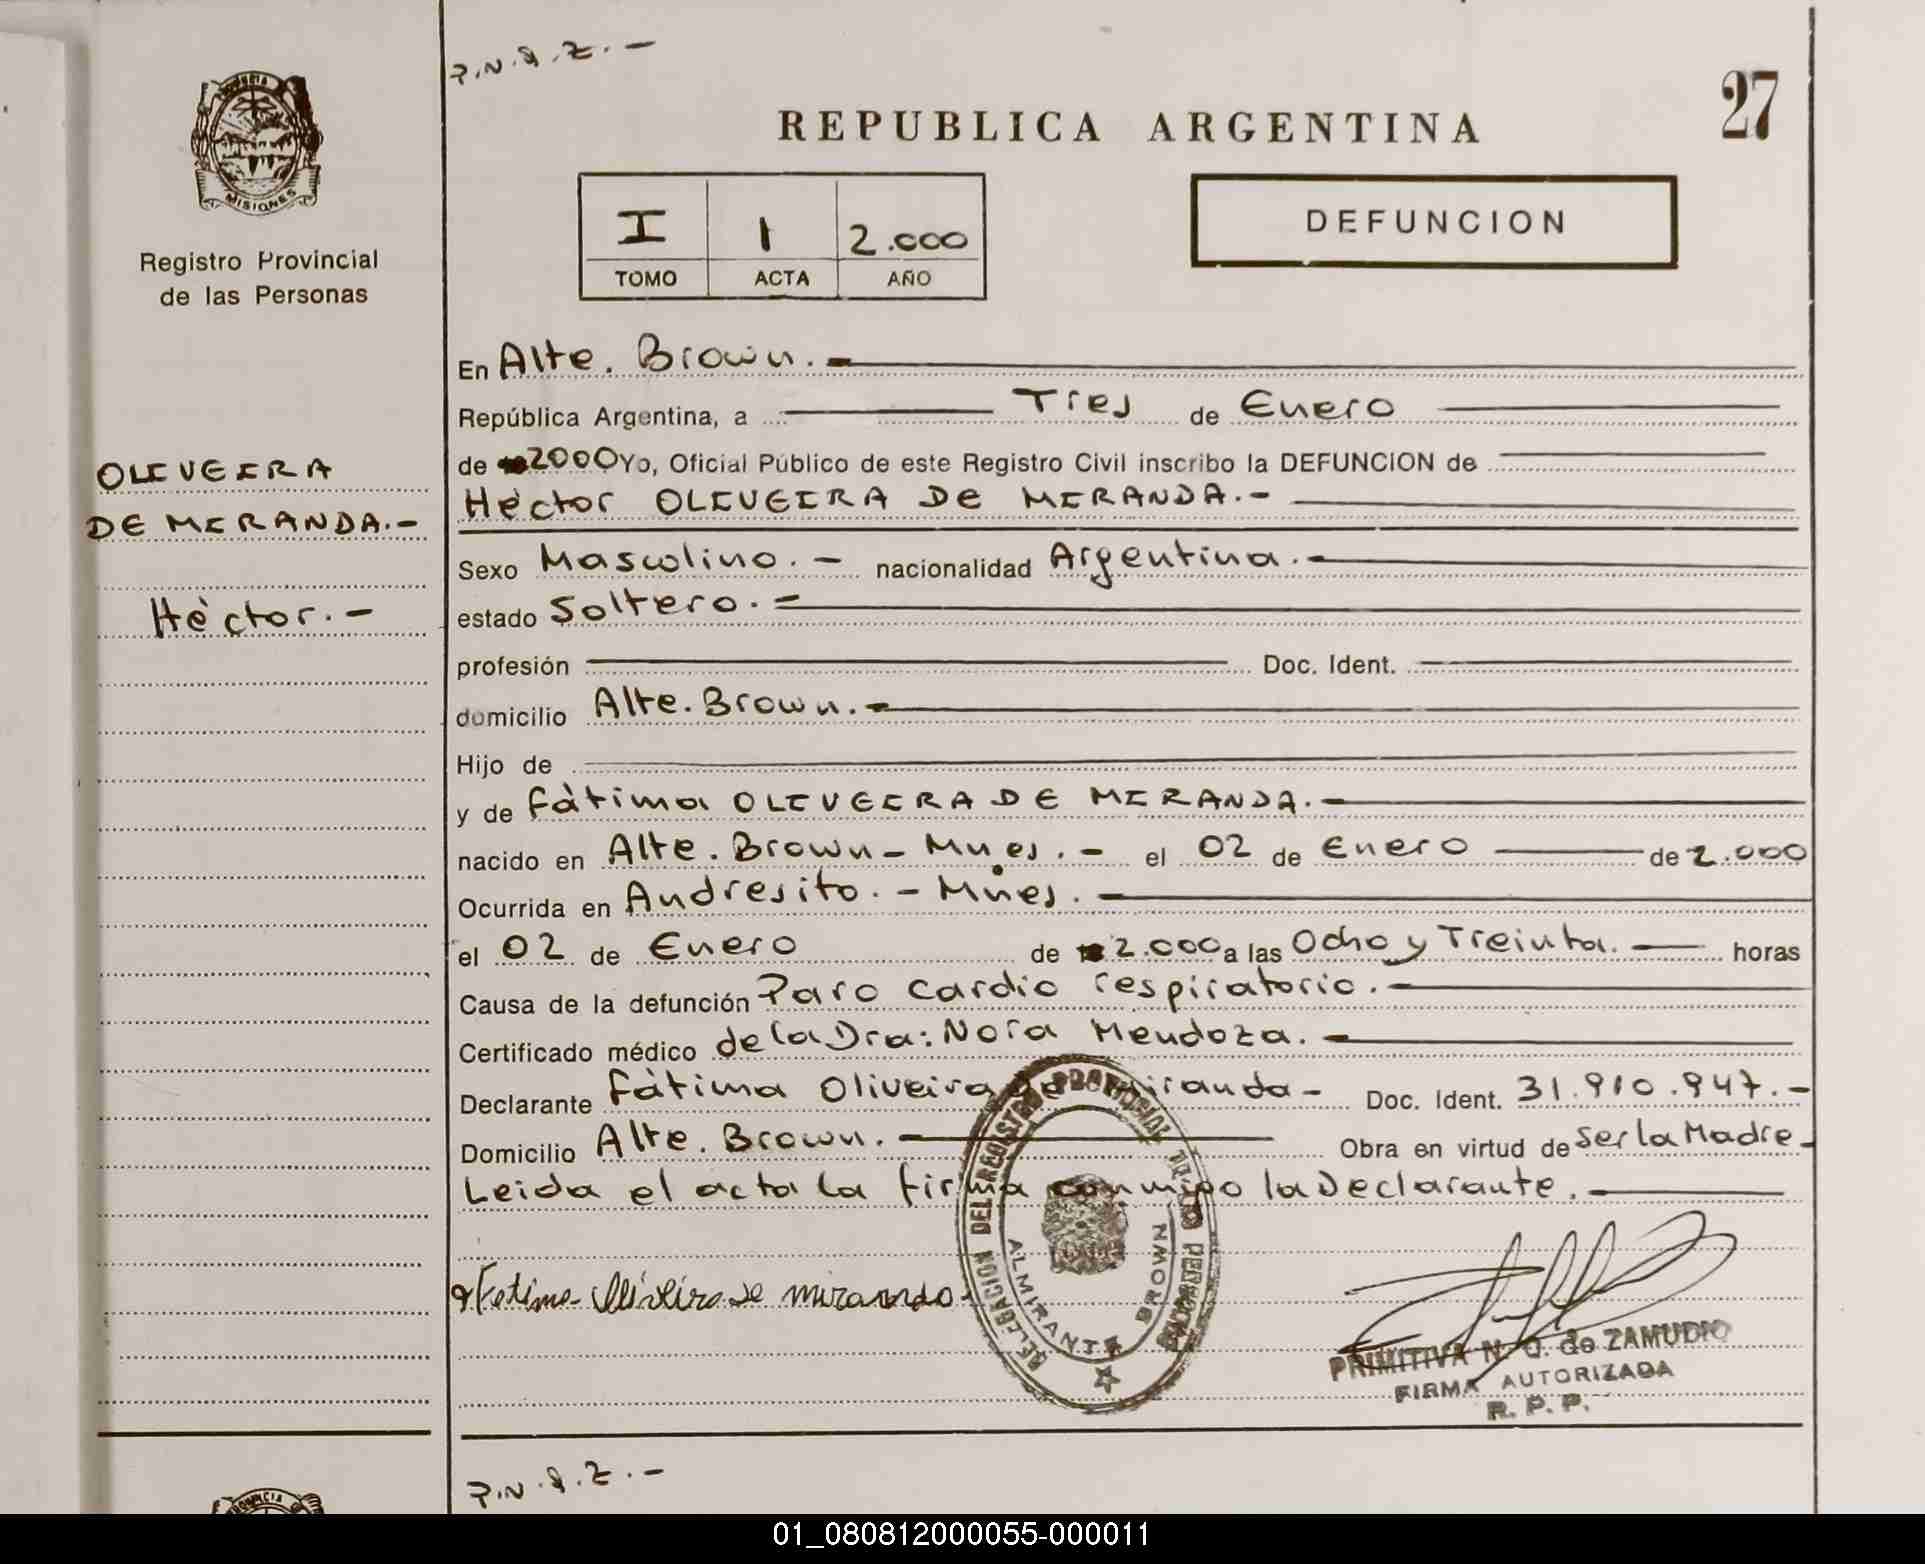 P.N.Q.Z.-
27
REPUBLICA ARGENTINA
MISIONES
Registro Provincial
de las Personas
I 1 2.000
TOMO ACTA AÑO
DEFUNCION
OLIVEIRA
DE MIRANDA.-
Héctor.-
En Alte. Brown.-
República Argentina, a Tres de Enero
de 2000 Yo, Oficial Público de este Registro Civil inscribo la DEFUNCION de
Héctor OLIVEIRA DE MIRANDA.-
Sexo Masculino.- nacionalidad Argentina.-
estado Soltero.-
profesión Doc. Ident.
domicilio Alte. Brown.-
Hijo de
y de Fátima OLIVEIRA DE MIRANDA.-
nacido en Alte. Brown - Mnes.- el 02 de Enero de 2.000
Ocurrida en Andresito.- Mnes.
el 02 de Enero de 2.000 a las Ocho y Treinta.- horas
Causa de la defunción Paro cardio respiratorio.-
Certificado médico de la Dra: Nora Mendoza.-
Declarante Fátima Oliveira de Miranda- Doc. Ident. 31.910.947.-
Domicilio Alte. Brown.- Obra en virtud de Ser la Madre-
Leida el acta la firma conmigo la Declarante.-
Fatima Oliveira de miranda
DELEGACION DEL REGISTRO PROVINCIAL DE LAS PERSONAS
ALMIRANTE BROWN
PRIMITIVA N. Q. de ZAMUDIO
FIRMA AUTORIZADA
R. P. P.
P.N.Q.Z.-
01_080812000055-000011